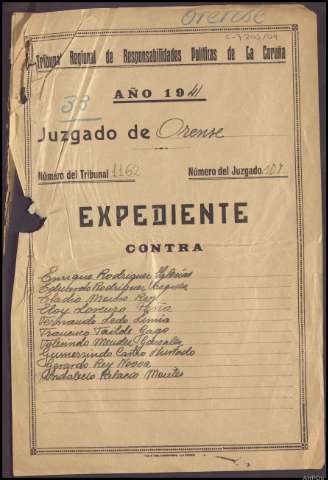 Orense
C-7203/04
Tribunal Regional de Responsabilidades Políticas de La Coruña
AÑO 1941
38
Juzgado de Orense
Número del Tribunal 1162 Número del Juzgado 107
EXPEDIENTE
CONTRA
Enrique Rodríguez
Edelbordo Rodríguez
Eladio Rey
Eloy Lorenzo
Fernando Ledo Limia
Francisco Tailde Gago
Mendez González
Gumersindo Castro Hurtado
Gerardo Rey Novoa
Indalecio Palacio Montes